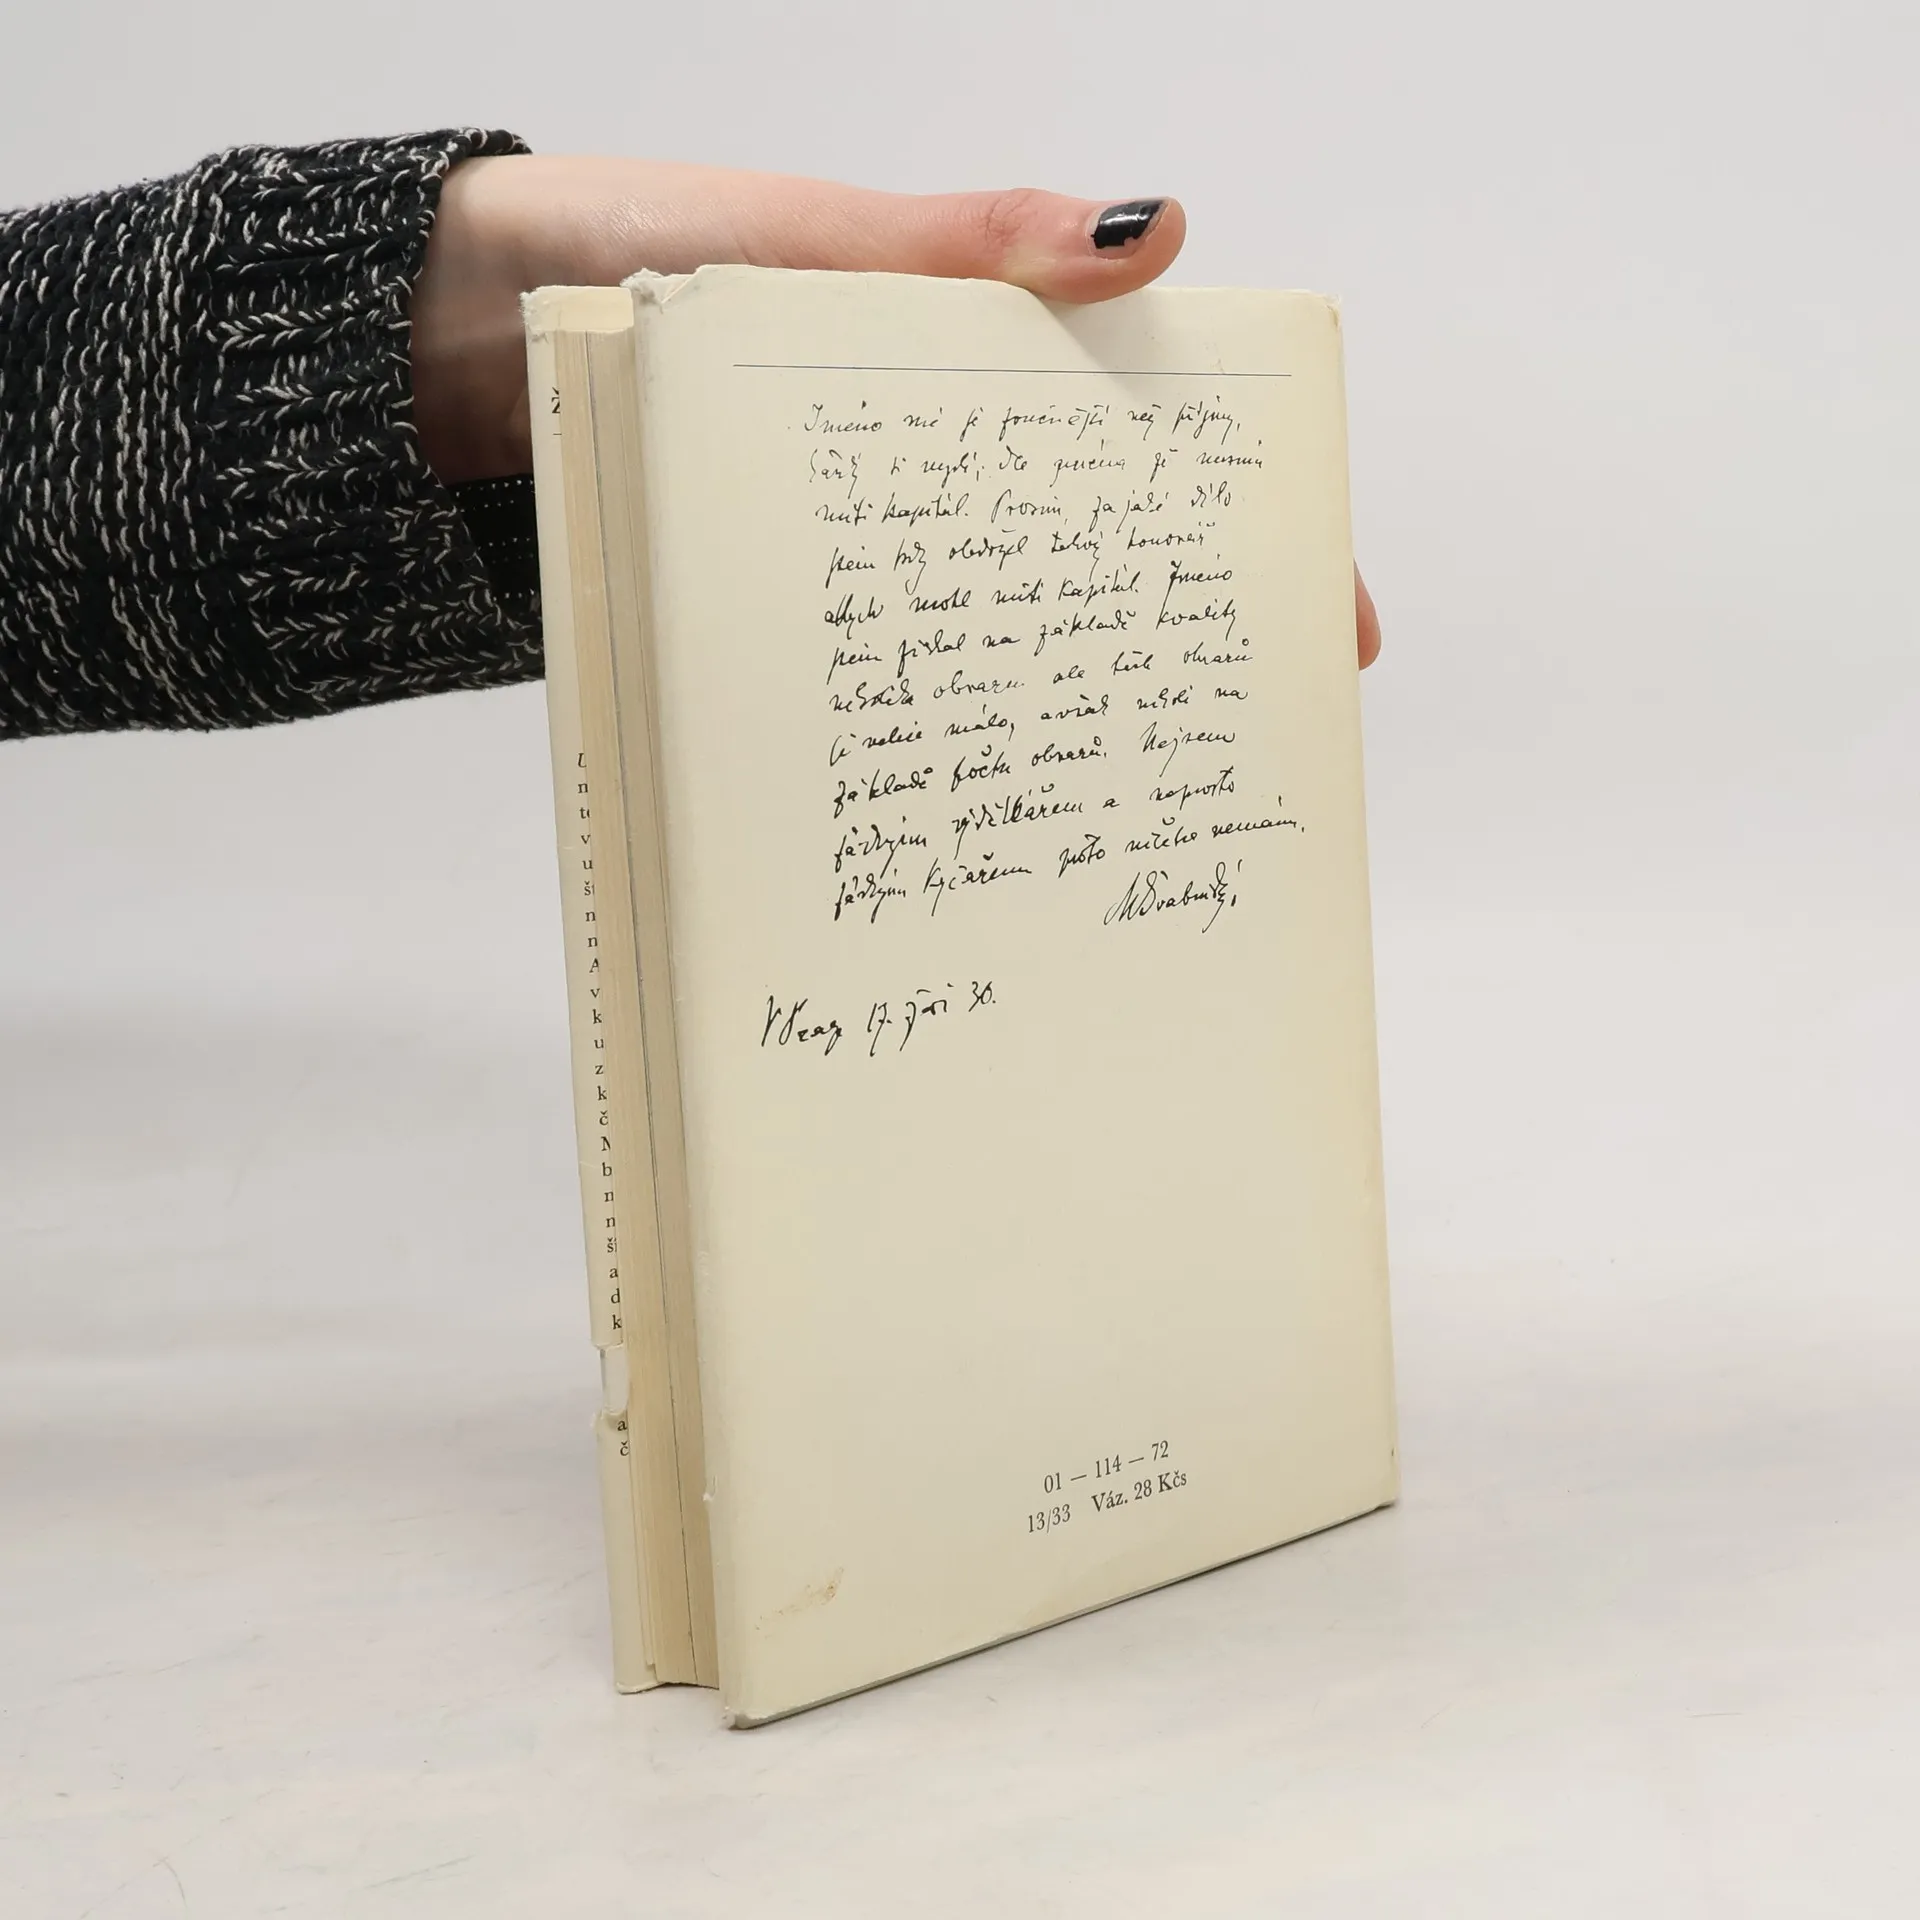 Ž
U
n
te
v
u
št
n
n
A
v
k
u
z
k
č
M
b
n
n
ší
a
d
k
a
č
Jméno mé je než příjmy,
každý ti myslí, dle jména že musím
míti kapitál. Prosím, za jaké dílo
jsem kdy obdržel takový honorář
abych mohl míti kapitál. Jméno
jsem získal na základě kvality
několika obrazů ale těch obrazů
je velice málo, avšak nikoli na
základě počtu obrazů. Nejsem
žádným výdělkářem a naprosto
žádným kyčařem proto ničeho nemám.
MŠvabinský
V Praze 17. září 30.
01 — 114 — 72
13/33 Váz. 28 Kčs